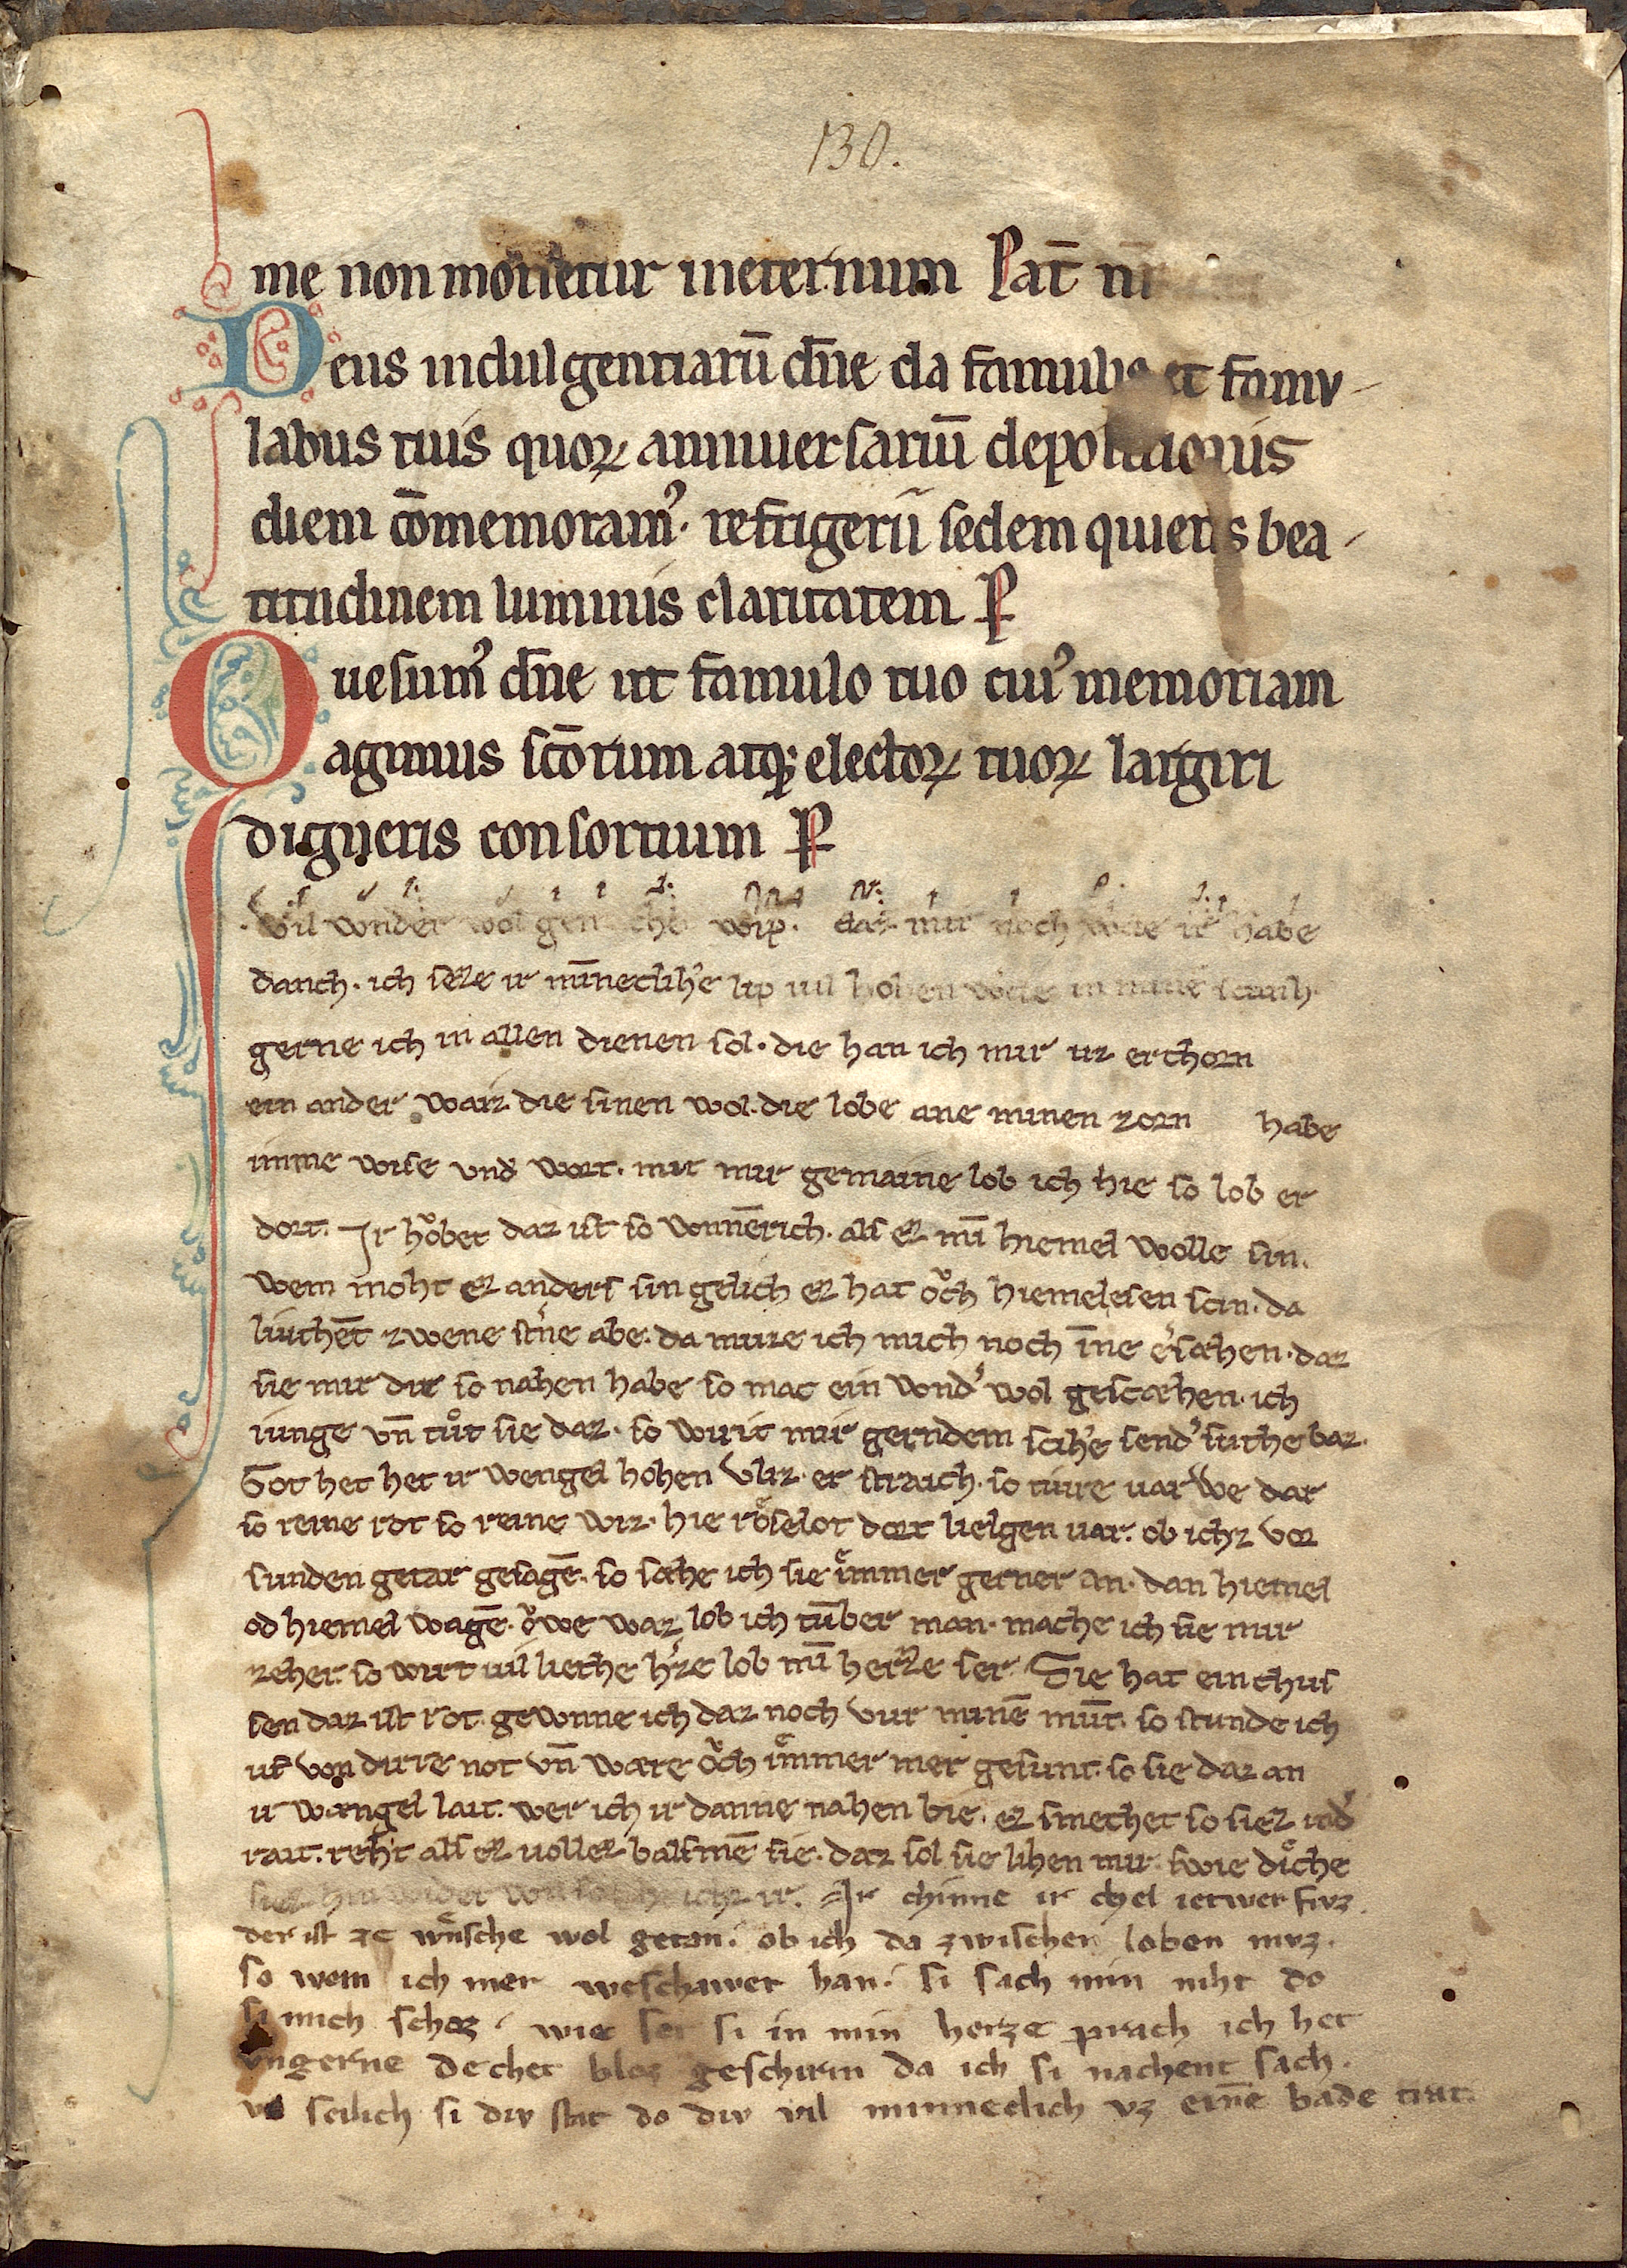 130.
me non morietur ineternum Pat̄ nr̄
Deus indulgentiarū dn̄e da famulis et famv-
labus tuis quoꝝ anniuersariū depositionis
diem cōmemoram᾽. refrigerij sedem quietis bea-
titudinem luminis claritatem P
Quesum᾽ dn̄e ut famulo tuo cui᾽ memoriam
agimus scōrum atqꝫ electoꝝ tuoꝝ largiri
digneris consortium P
Vil wnder wol gem chet wip. daz mir noch werde ir habe
danch. ich sezze ir mīneclih᾽e lip uil hohen in mine
gerne ich in allen dienen sol. die han ich mir uz erchorn
ein ander waiz die sinen wol. die lobe ane minen zorn habe
imme wise vnd wort. mit mir gemaine lob ich hie so lob er
dort. Ir hoͮbet daz ist so wnnērich. als ez mī hiemel wolle sin.
wem moht ez anders sin gelich ez hat oͮch hiemelesen scin. da
liuthēt zwene st᾽ne abe. da muze ich mich noch īne ersæhen. daz
sie mir die so nahen habe so mac ein wnd᾽ wol gescæhen. ich
iunge vn̄ tuͦt sie daz. so wirit mir gerndem scih᾽e send᾽ suthe baz.
Got het het ir wengel hohen vliz. er straich. so tiure uarwe dar
so reine rot so reine wiz. hie roͤselot dort lielgen uar. ob ichz vor
sunden getar gesagē. so sæhe ich sie iͤmmer gerner an. dan hiemel
od hiemel wagē. oͮwe waz lob ich tūber man. mache ich sie mir
zeher. so wirt uil liethe h᾽ze lob mī herze ser. Sie hat ein chus
sen daz ist rot. gewnne ich daz noch vur minē mūt. so stunde ich
uf von dirre not vn̄ wære oͮch iͤmmer mer gesunt. so sie daz an
ir wangel lait. wer ich ir danne nahen bie. ez smechet so siez ind᾽
rait. reh᾽t als ez vollez balsmē sie. daz sol sie lihen mir. swie diͤche
siez hin wider wil ichz ir. Ir chinne ir chel ietwer fvz
der ist ze wͤnsche wol getan. ob ich da zwischen loben mvz.
so wem ich mer weschawet han. si sach min niht do
si mich schoz. wie ser si in min herze prach ich het
vngerne dechet bloz geschirin da ich si nachent sach.
vo scilich si div stat do div vil minneclich vz einē bade trat